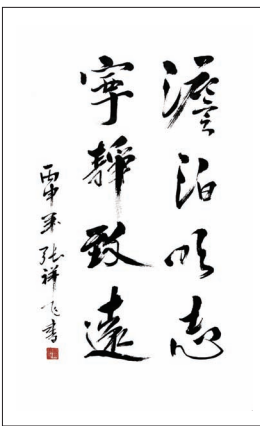 澹泊明志
寧靜致遠
丙申年張祥飞書